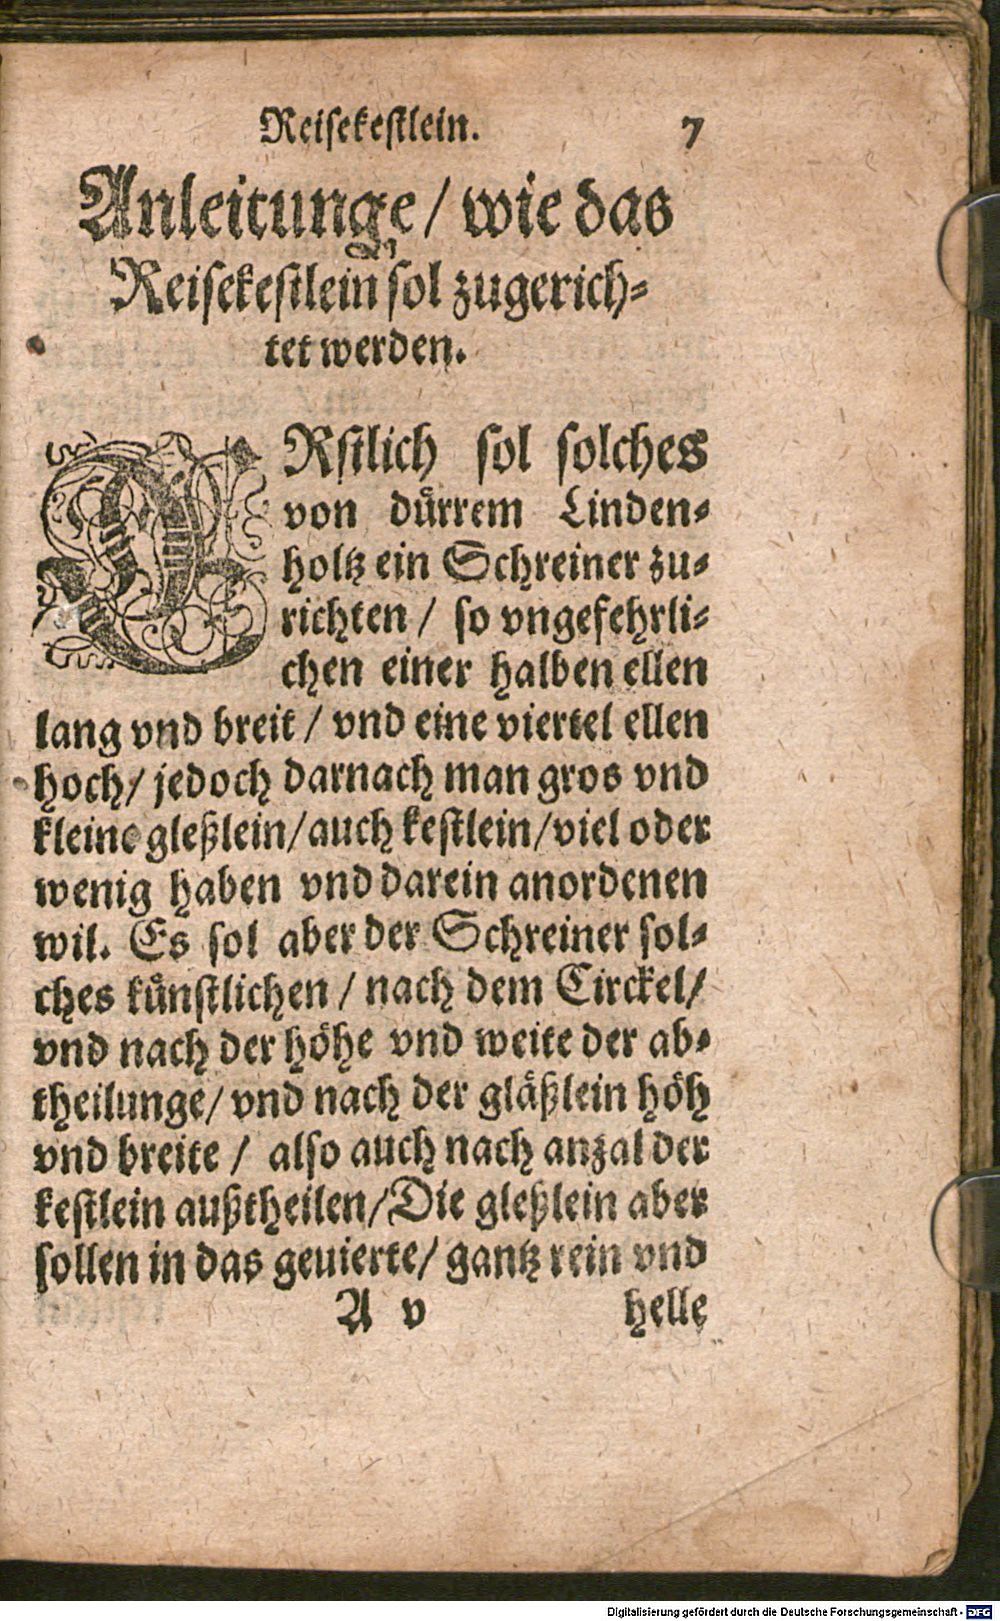 Reisekestlein. 7
Anleitunge / wie das
Reisekestlein sol zugerich-
tet werden.
ERstlich sol solches
von duͤrrem Linden-
holtz ein Schreiner zu-
richten / so vngefehrli-
chen einer halben ellen
lang vnd breit / vnd eine viertel ellen
hoch / jedoch darnach man gros vnd
kleine gleßlein / auch kestlein / viel oder
wenig haben vnd darein anordenen
wil. Es sol aber der Schreiner sol-
ches kuͤnstlichen / nach dem Circkel /
vnd nach der hoͤhe vnd weite der ab-
theilunge / vnd nach der glaͤßlein hoͤh
vnd breite / also auch nach anzal der
kestlein außtheilen / Die gleßlein aber
sollen in das geuierte / gantz rein vnd
A v helle
Digitalisierung gefördert durch die Deutsche Forschungsgemeinschaft - DFG